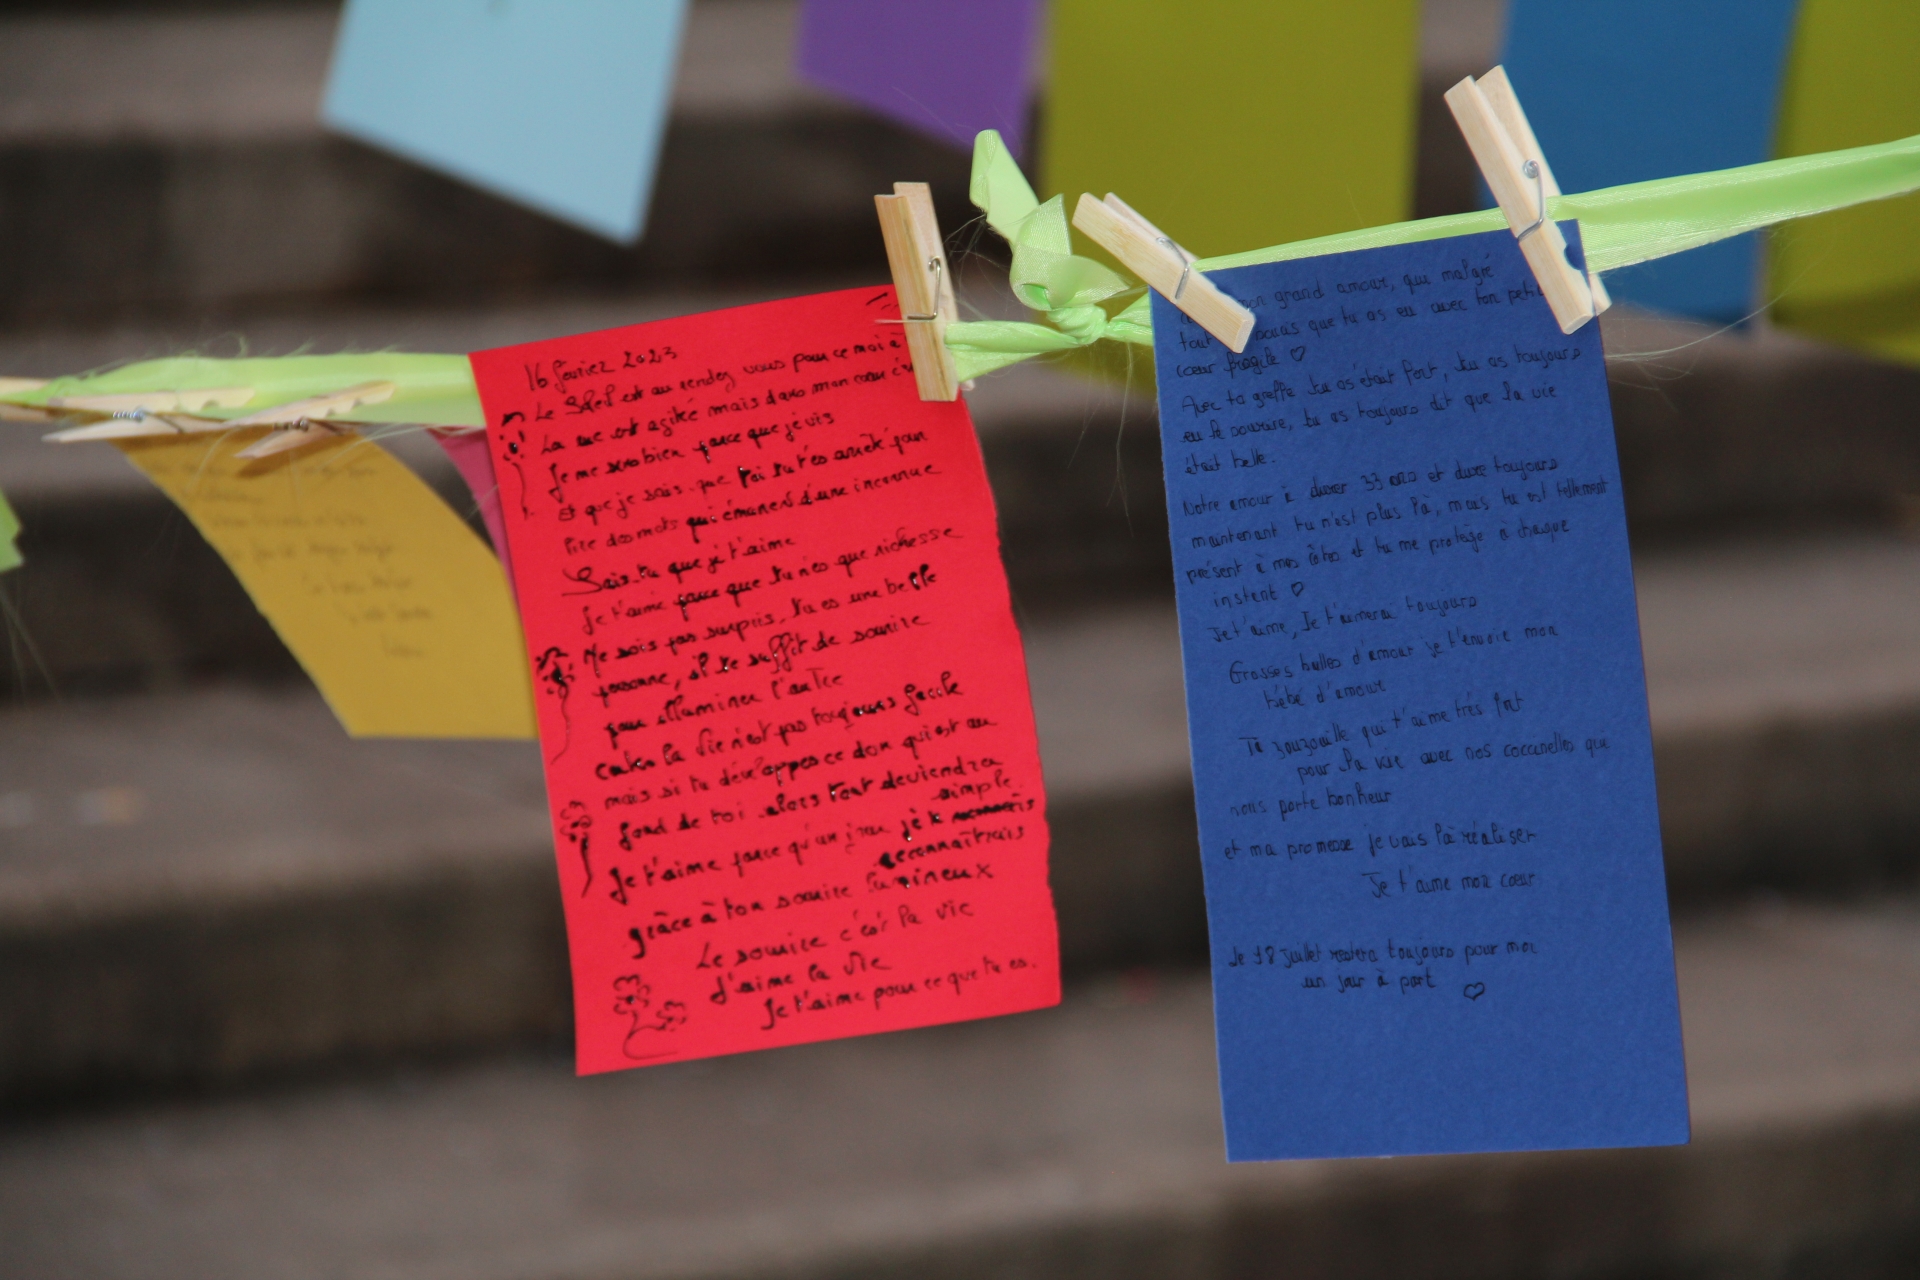 16 février 2023
Le Soleil est au rendez vous pour ce moi
La rue est agitée mais dans mon cœur
Je me sens bien parce que je vis
Et que je sais que toi tu t'es arrêté pour
lire des mots qui émanent d'une inconnue
Sais-tu que je t'aime
Je t'aime parce que tu n'es que richesse
Ne sois pas surpris, tu es une belle
personne, il te suffit de sourire
pour illuminer l'autre
certes la vie n'est pas toujours facile
mais si tu développes ce don qui est au
fond de toi alors tout deviendra
simple.
Je t'aime parce qu'un jour je te reconnais
reconnaîtrais
grâce à ton sourire lumineux
Le sourire c'est la vie
J'aime la vie
Je t'aime pour ce que tu es.
mon grand amour, que malgré
tout que tu as eu avec ton petit
cœur fragile ♡
Avec ta greffe tu as était fort, tu as toujours
eu le sourire, tu as toujours dit que la vie
était belle.
Notre amour à durer 33 ans et dure toujours
maintenant tu n'est plus là, mais tu est tellement
présent à mes côtes et tu me protège à chaque
instent ♡
Je t'aime, Je t'aimera toujours
Grosses bulles d'amour je t'envoie mon
bébé d'amour
Ta zouzouille qui t'aime très fort
pour la vie avec nos coccinelles qui
nous porte bonheur
et ma promesse je vais la réaliser
Je t'aime mon cœur
Le 18 juillet restera toujours pour moi
un jour à part ♡